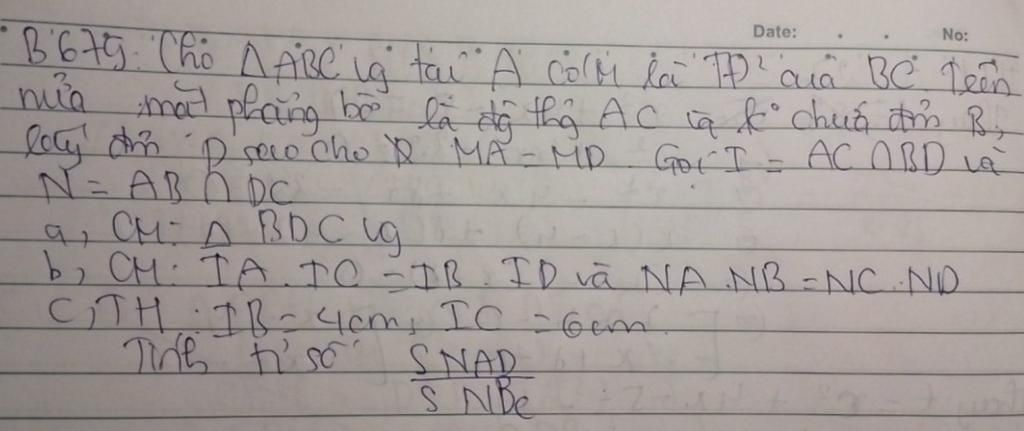 Date: . . No:
B679. Cho ΔABC vg tại A có M là TĐ² của BC. Trên
nửa mặt phẳng bờ là đg thg AC và k° chứa đm B,
lấy đm D sao cho MA = MD. Gọi I = AC ∩ BD và
N = AB ∩ DC
a, CM: Δ BDC vg
b, CM: IA. IC = IB. ID và NA.NB = NC.ND
C, TH: IB = 4cm, IC = 6cm.
Tính tỉ số S NAD
S NBC